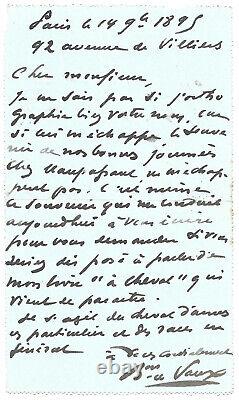 Paris le 14 9bre 1895
92 avenue de Villiers
Cher monsieur,
Je ne sais pas si j'ortho
graphie bien votre nom, car
si ceci m'échappe le souve
nir de nos bonnes journées
chez Maupassant ne m'échap
pent pas. C'est même
ce souvenir qui me conduit
aujourd'hui à vous écrire
pour vous demander si vous
seriez disposé à parler de
mon livre "à cheval" qui
vient de paraître.
Je s'agit du cheval d'armes
en particulier et des races en
général
à vous cordialement
Bon de Vaux
© sals.fr